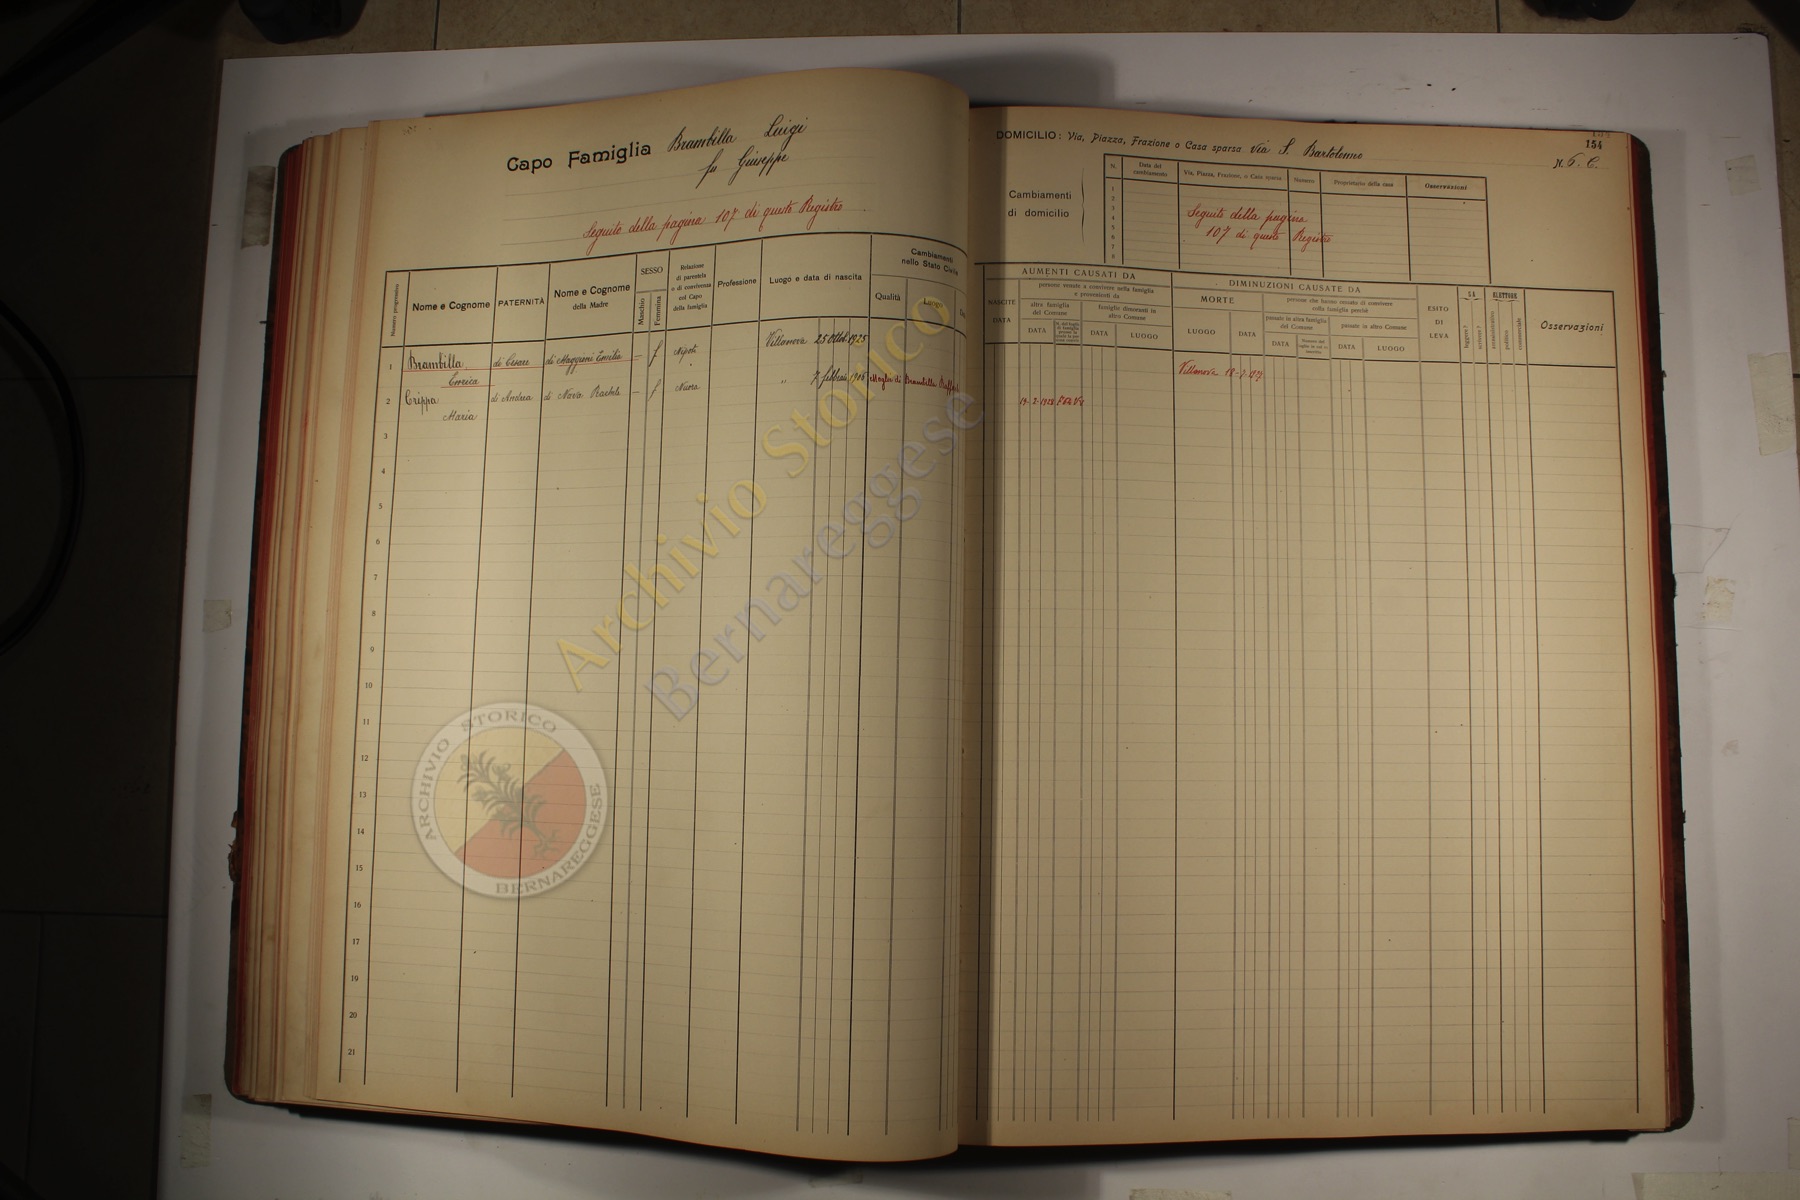 Capo Famiglia Brambilla Luigi
fu Giuseppe
Seguito della pagina 107 di questo Registro
Numero progressivo
Nome e Cognome
PATERNITÀ
Nome e Cognome
della Madre
SESSO
Maschio
Femmina
Relazione
di parentela
o di convivenza
col Capo
della famiglia
Professione
Luogo e data di nascita
Cambiamenti
nello Stato Civile
Qualità
Luogo
1 Brambilla di Cesare di Maggioni Emilia = f Nipote Villanova 25 Ottob. 1925
Enrica
2 Crippa di Andrea di Nava Rachele — f Nuora " 7 febbraio 1906 Moglie di Brambilla
Maria
3
4
5
6
7
8
9
10
11
12
13
14
15
16
17
18
19
20
21
DOMICILIO: Via, Piazza, Frazione o Casa sparsa Via S. Bartolomeo
N. 6. C.
154
Cambiamenti
di domicilio
N.
Data del
cambiamento
Via, Piazza, Frazione, o Casa sparsa
Numero
Proprietario della casa
Osservazioni
1
2
3
4
5
6
7
8
Seguito della pagina
107 di questo Registro
AUMENTI CAUSATI DA
NASCITE
DATA
persone venute a convivere nella famiglia
e provenienti da
altra famiglia
del Comune
famiglie dimoranti in
altro Comune
DATA
DATA
LUOGO
DIMINUZIONI CAUSATE DA
MORTE
LUOGO
DATA
persone che hanno cessato di convivere
colla famiglia perchè
passate in altra famiglia
del Comune
passate in altro Comune
DATA
DATA
LUOGO
ESITO
DI
LEVA
SA
leggere?
scrivere?
ELETTORE
amministrativo
politico
commerciale
Osservazioni
Villanova
19-2-1928
Archivio Storico
Bernareggese
ARCHIVIO STORICO
BERNAREGGESE